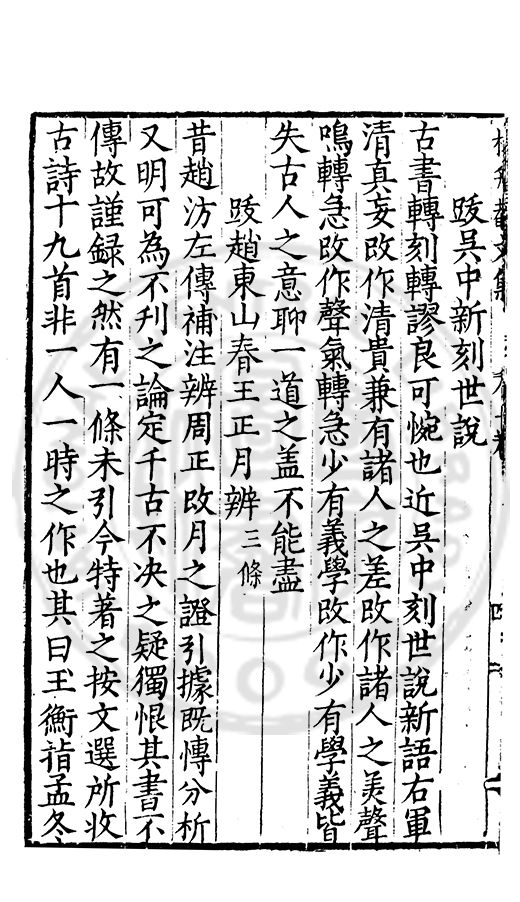 跋吳中新刻世說
古書轉刻轉謬良可惋也近吳中刻世說新語右軍
清真妄改作清貴兼有諸人之差改作諸人之美聲
鳴轉急改作聲氣轉急少有義學改作少有學義皆
失古人之意聊一道之盖不能盡
跋趙東山春王正月辨三條
昔趙汸左傳補注辨周正改月之證引據既愽分析
又明可為不刋之論定千古不决之疑獨恨其書不
傳故謹録之然有一條未引今特著之按文選所收
古詩十九首非一人一時之作也其曰玉衡指孟冬